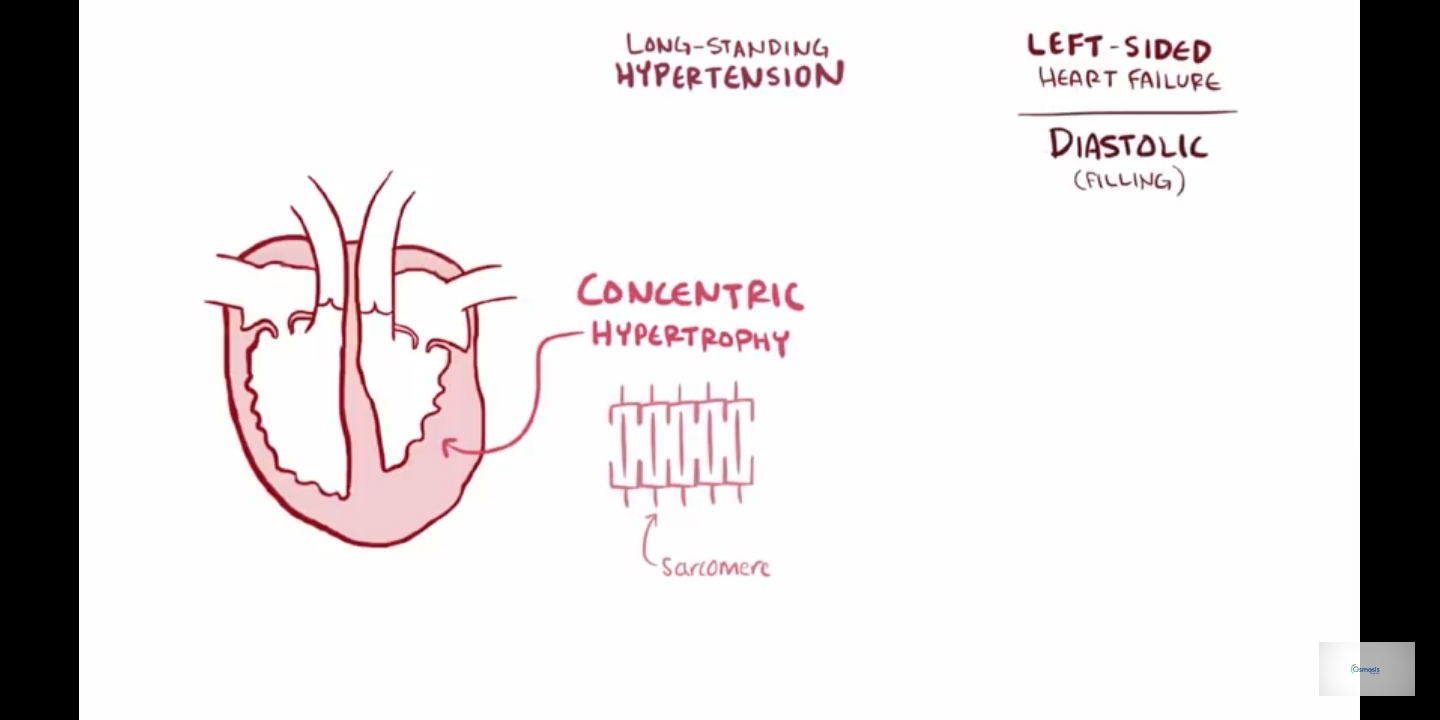 LONG-STANDING
HYPERTENSION
LEFT-SIDED
HEART FAILURE
DIASTOLIC
(FILLING)
CONCENTRIC
HYPERTROPHY
Sarcomere
Osmosis